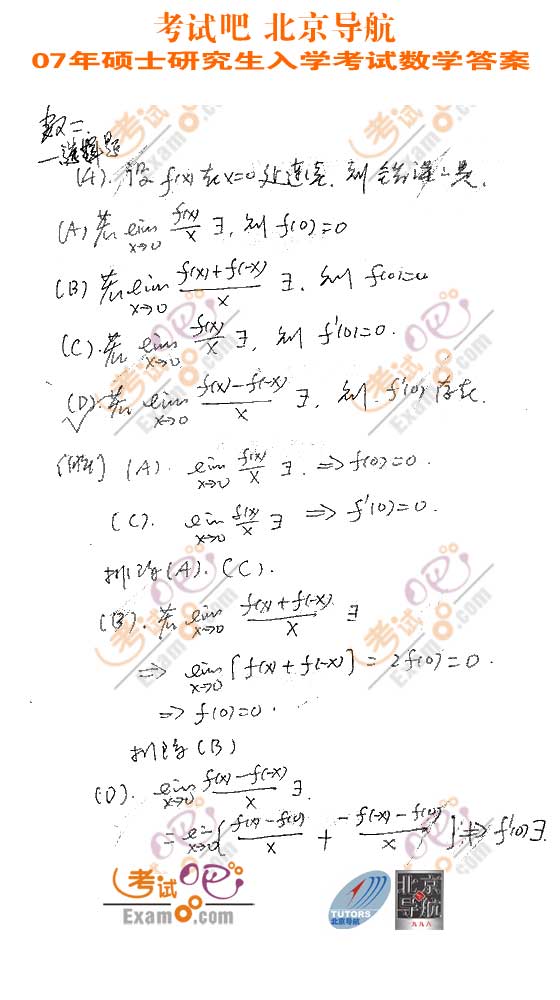 考试吧 北京导航
07年硕士研究生入学考试数学答案
数二
一选择题
(4). 设 f(x) 在 x=0 处连续, 则错误的是.
(A) 若 lim x→0 f(x)/x ∃, 则 f(0)=0
(B) 若 lim x→0 (f(x)+f(-x))/x ∃, 则 f(0)=0
(C). 若 lim x→0 f(x)/x ∃, 则 f'(0)=0.
(D). 若 lim x→0 (f(x)-f(-x))/x ∃, 则 f'(0) 存在.
(A). lim x→0 f(x)/x ∃. ⇒ f(0)=0.
(C). lim x→0 f(x)/x ∃ ⇒ f'(0)=0.
排除(A).(C).
(B). 若 lim x→0 (f(x)+f(-x))/x ∃
⇒ lim x→0 [f(x)+f(-x)] = 2f(0)=0.
⇒ f(0)=0.
排除(B)
(D). lim x→0 (f(x)-f(-x))/x ∃.
= lim x→0 [(f(x)-f(0))/x + (-f(-x)-f(0))/x] ⇏ f'(0)∃.
考试吧
Exam8.com
TUTORS
北京导航
北京
导航
九九八